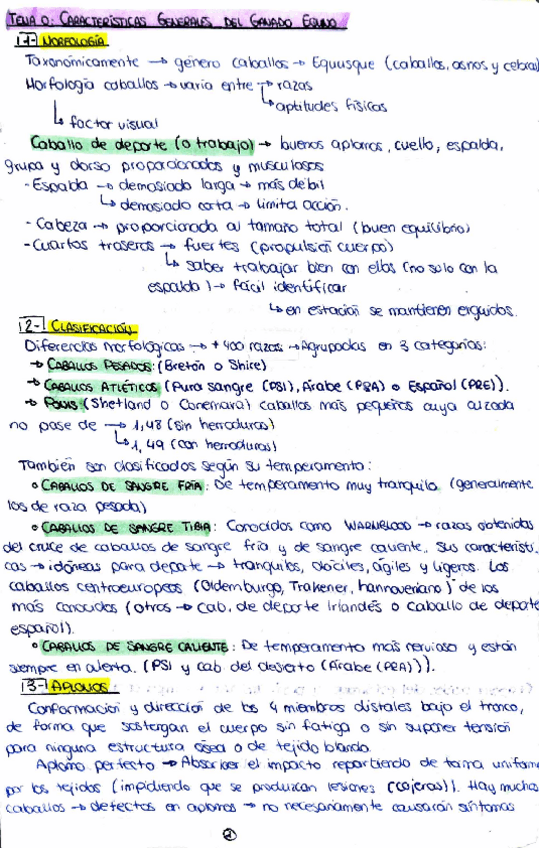 TEMA 0: CARACTERÍSTICAS GENERALES DEL GANADO EQUINO
1- MORFOLOGÍA
Taxonómicamente → género caballos → Equusque (caballos, asnos y cebras)
Morfología caballos → varía entre → razas
→ aptitudes físicas
→ factor visual
Caballo de deporte (o trabajo) → buenos aplomos, cuello, espalda,
grupa y dorso proporcionados y musculosos
- Espalda → demasiado larga → más débil
→ demasiado corta → limita acción.
- Cabeza → proporcionada al tamaño total (buen equilibrio)
- Cuartos traseros → fuertes (propulsión cuerpo)
→ saber trabajar bien con ellos (no solo con la
espalda) → fácil identificar
→ en estación se mantienen erguidos.
2- CLASIFICACIÓN
Diferencias morfológicas → + 400 razas → Agrupadas en 3 categorías:
→ CABALLOS PESADOS: (Bretón o Shire)
→ CABALLOS ATLÉTICOS (Pura sangre (PSI), Árabe (PRA) o Español (PRE)).
→ PONIS (Shetland o Conemara) caballos más pequeños cuya alzada
no pase de → 1,48 (sin herraduras)
→ 1,49 (con herraduras)
También son clasificados según su temperamento:
° CABALLOS DE SANGRE FRÍA: De temperamento muy tranquilo. (generalmente
los de raza pesada)
° CABALLOS DE SANGRE TIBIA: Conocidos como WARMBLOOD → razas obtenidas
del cruce de caballos de sangre fría y de sangre caliente. Sus característi-
cas → idóneas para deporte → tranquilos, dóciles, ágiles y ligeros. Los
caballos centroeuropeos (Oldemburgo, Trakener, hannoveriano) de los
más conocidos (otros → cab. de deporte irlandés o caballo de deporte
español).
° CABALLOS DE SANGRE CALIENTE: De temperamento más nervioso y están
siempre en alerta. (PSI y cab del desierto (Árabe (PRA))).
3- APLOMOS
Conformación y dirección de los 4 miembros distales bajo el tronco,
de forma que sostengan el cuerpo sin fatiga o sin suponer tensión
para ninguna estructura ósea o de tejido blando.
Aplomo perfecto → Absorber el impacto repartiendo de forma uniforme
por los tejidos (impidiendo que se produzcan lesiones (cojeras)). Hay muchos
caballos → defectos en aplomos → no necesariamente causarán síntomas